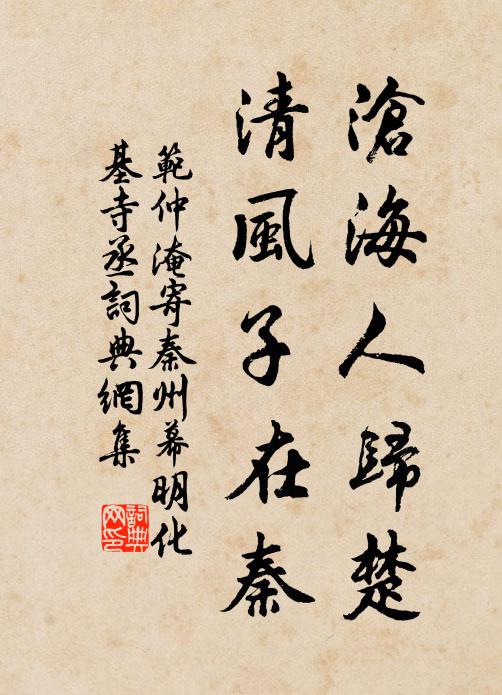 滄海人歸楚
清風子在秦
範仲淹寄秦州幕明化
基寺丞詞典網集
詞典
网印